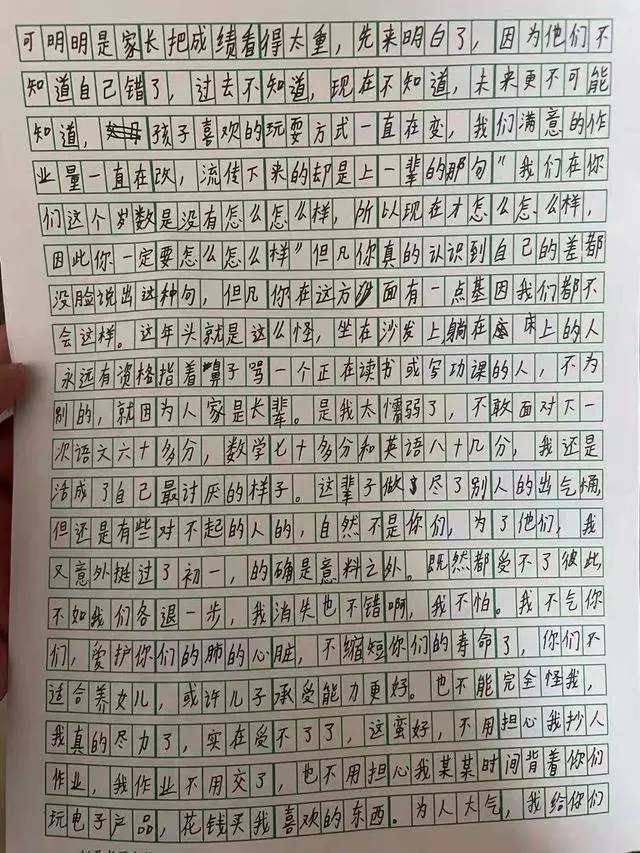 可明明是家长把成绩看得太重，先来明白了，因为他们不
知道自己错了，过去不知道，现在不知道，未来更不可能
知道，孩子喜欢的玩耍方式一直在变，我们满意的作
业量一直在改，流传下来的却是上一辈的那句“我们在你
们这个岁数是没有怎么怎么样，所以现在才怎么怎么样，
因此你一定要怎么怎么样”但凡你真的认识到自己的差都
没脸说出这种句，但凡你在这方面有一点基因我们都不
会这样。这年头就是这么怪，坐在沙发上躺在床上的人
永远有资格指着鼻子骂一个正在读书或写功课的人，不为
别的，就因为人家是长辈。是我太懦弱了，不敢面对下一
次语文六十多分，数学七十多分和英语八十几分，我还是
活成了自己最讨厌的样子。这辈子做了尽了别人的出气桶，
但还是有些对不起的人的，自然不是你们，为了他们，我
又意外挺过了初一，的确是意料之外。既然都受不了彼此，
不如我们各退一步，我消失也不错啊，我不怕。我不气你
们，爱护你们的肺的心脏，不缩短你们的寿命了，你们不
适合养女儿，或许儿子承受能力更好。也不能完全怪我，
我真的尽力了，实在受不了了，这蛮好，不用担心我抄人
作业，我作业不用交了，也不用担心我某某时间背着你们
玩电子产品，花钱买我喜欢的东西。为人大气，我给你们